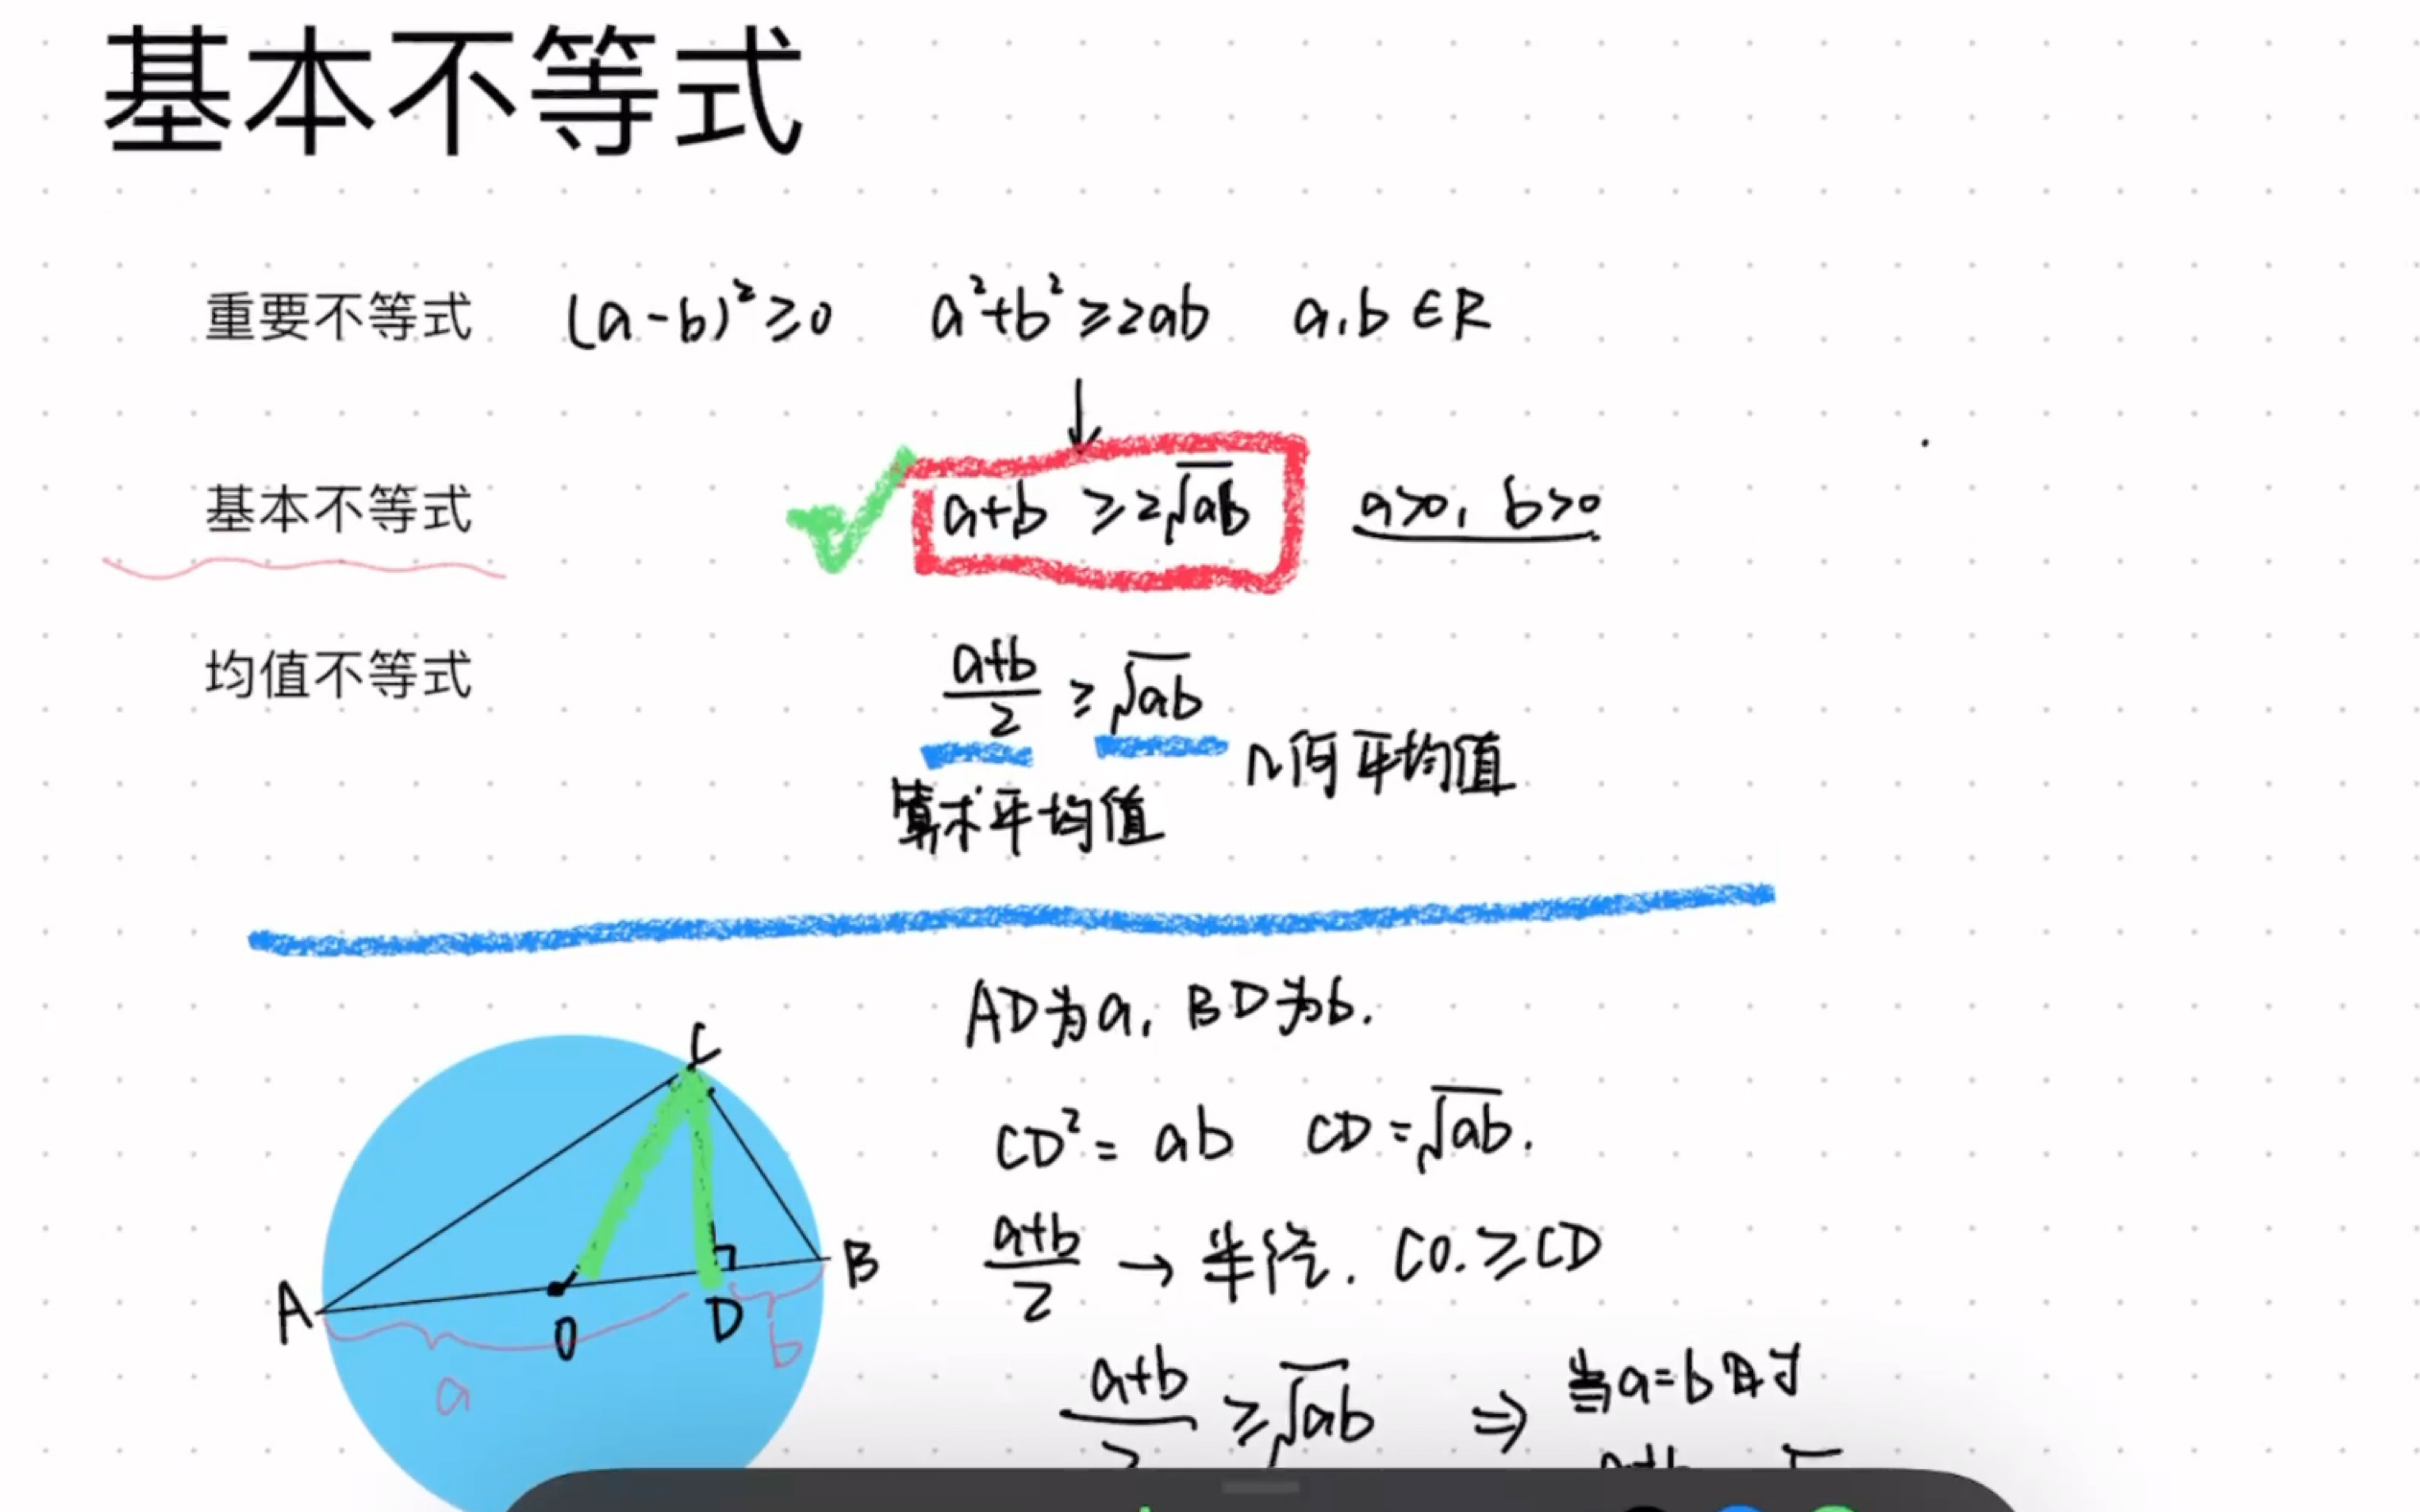 基本不等式
重要不等式 (a-b)²≥0 a²+b²≥2ab a,b∈R
基本不等式 a+b ≥2√ab a>0, b>0
均值不等式 a+b/2 ≥ √ab
几何平均值
算术平均值
AD为a, BD为b.
C
CD²= ab CD=√ab.
a+b/2 → 半径. CO.≥CD
A O D B
a b
a+b/2 ≥√ab ⇒ 当a=b时